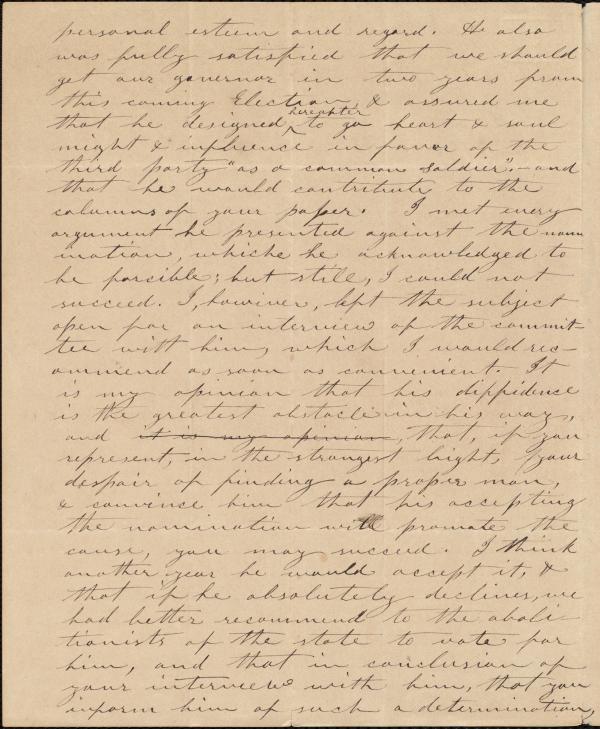 personal esteem and regard. He also
was fully satisfied that we should
get our governor in two years from
this coming Election, & assured me
hereafter
that he designed ^ to go heart & soul
might & influence in favor of the
third party "as a common soldier".—and
that he would contribute to the
columns of your paper. I met every
argument he presented against the nom-
ination, whiche he acknowledged to
be forcible; but still, I could not
succeed. I, however, left the subject
open for an interview of the commit-
tee with him, which I would rec-
ommend as soon as convenient. It
is my opinion that his diffidence
is the greatest obstacle in his way,
and it is my opinion, that, if you
represent, in the strongest light, your
despair of finding a proper man,
& convince him that his accepting
the nomination will promote the
cause, you may succeed. I think
another year he would accept it, &
that if he absolutely declines, we
had better recommend to the aboli-
tionists of the state to vote for
him, and that in conclusion of
your interview with him, that you
inform him of such a determination,